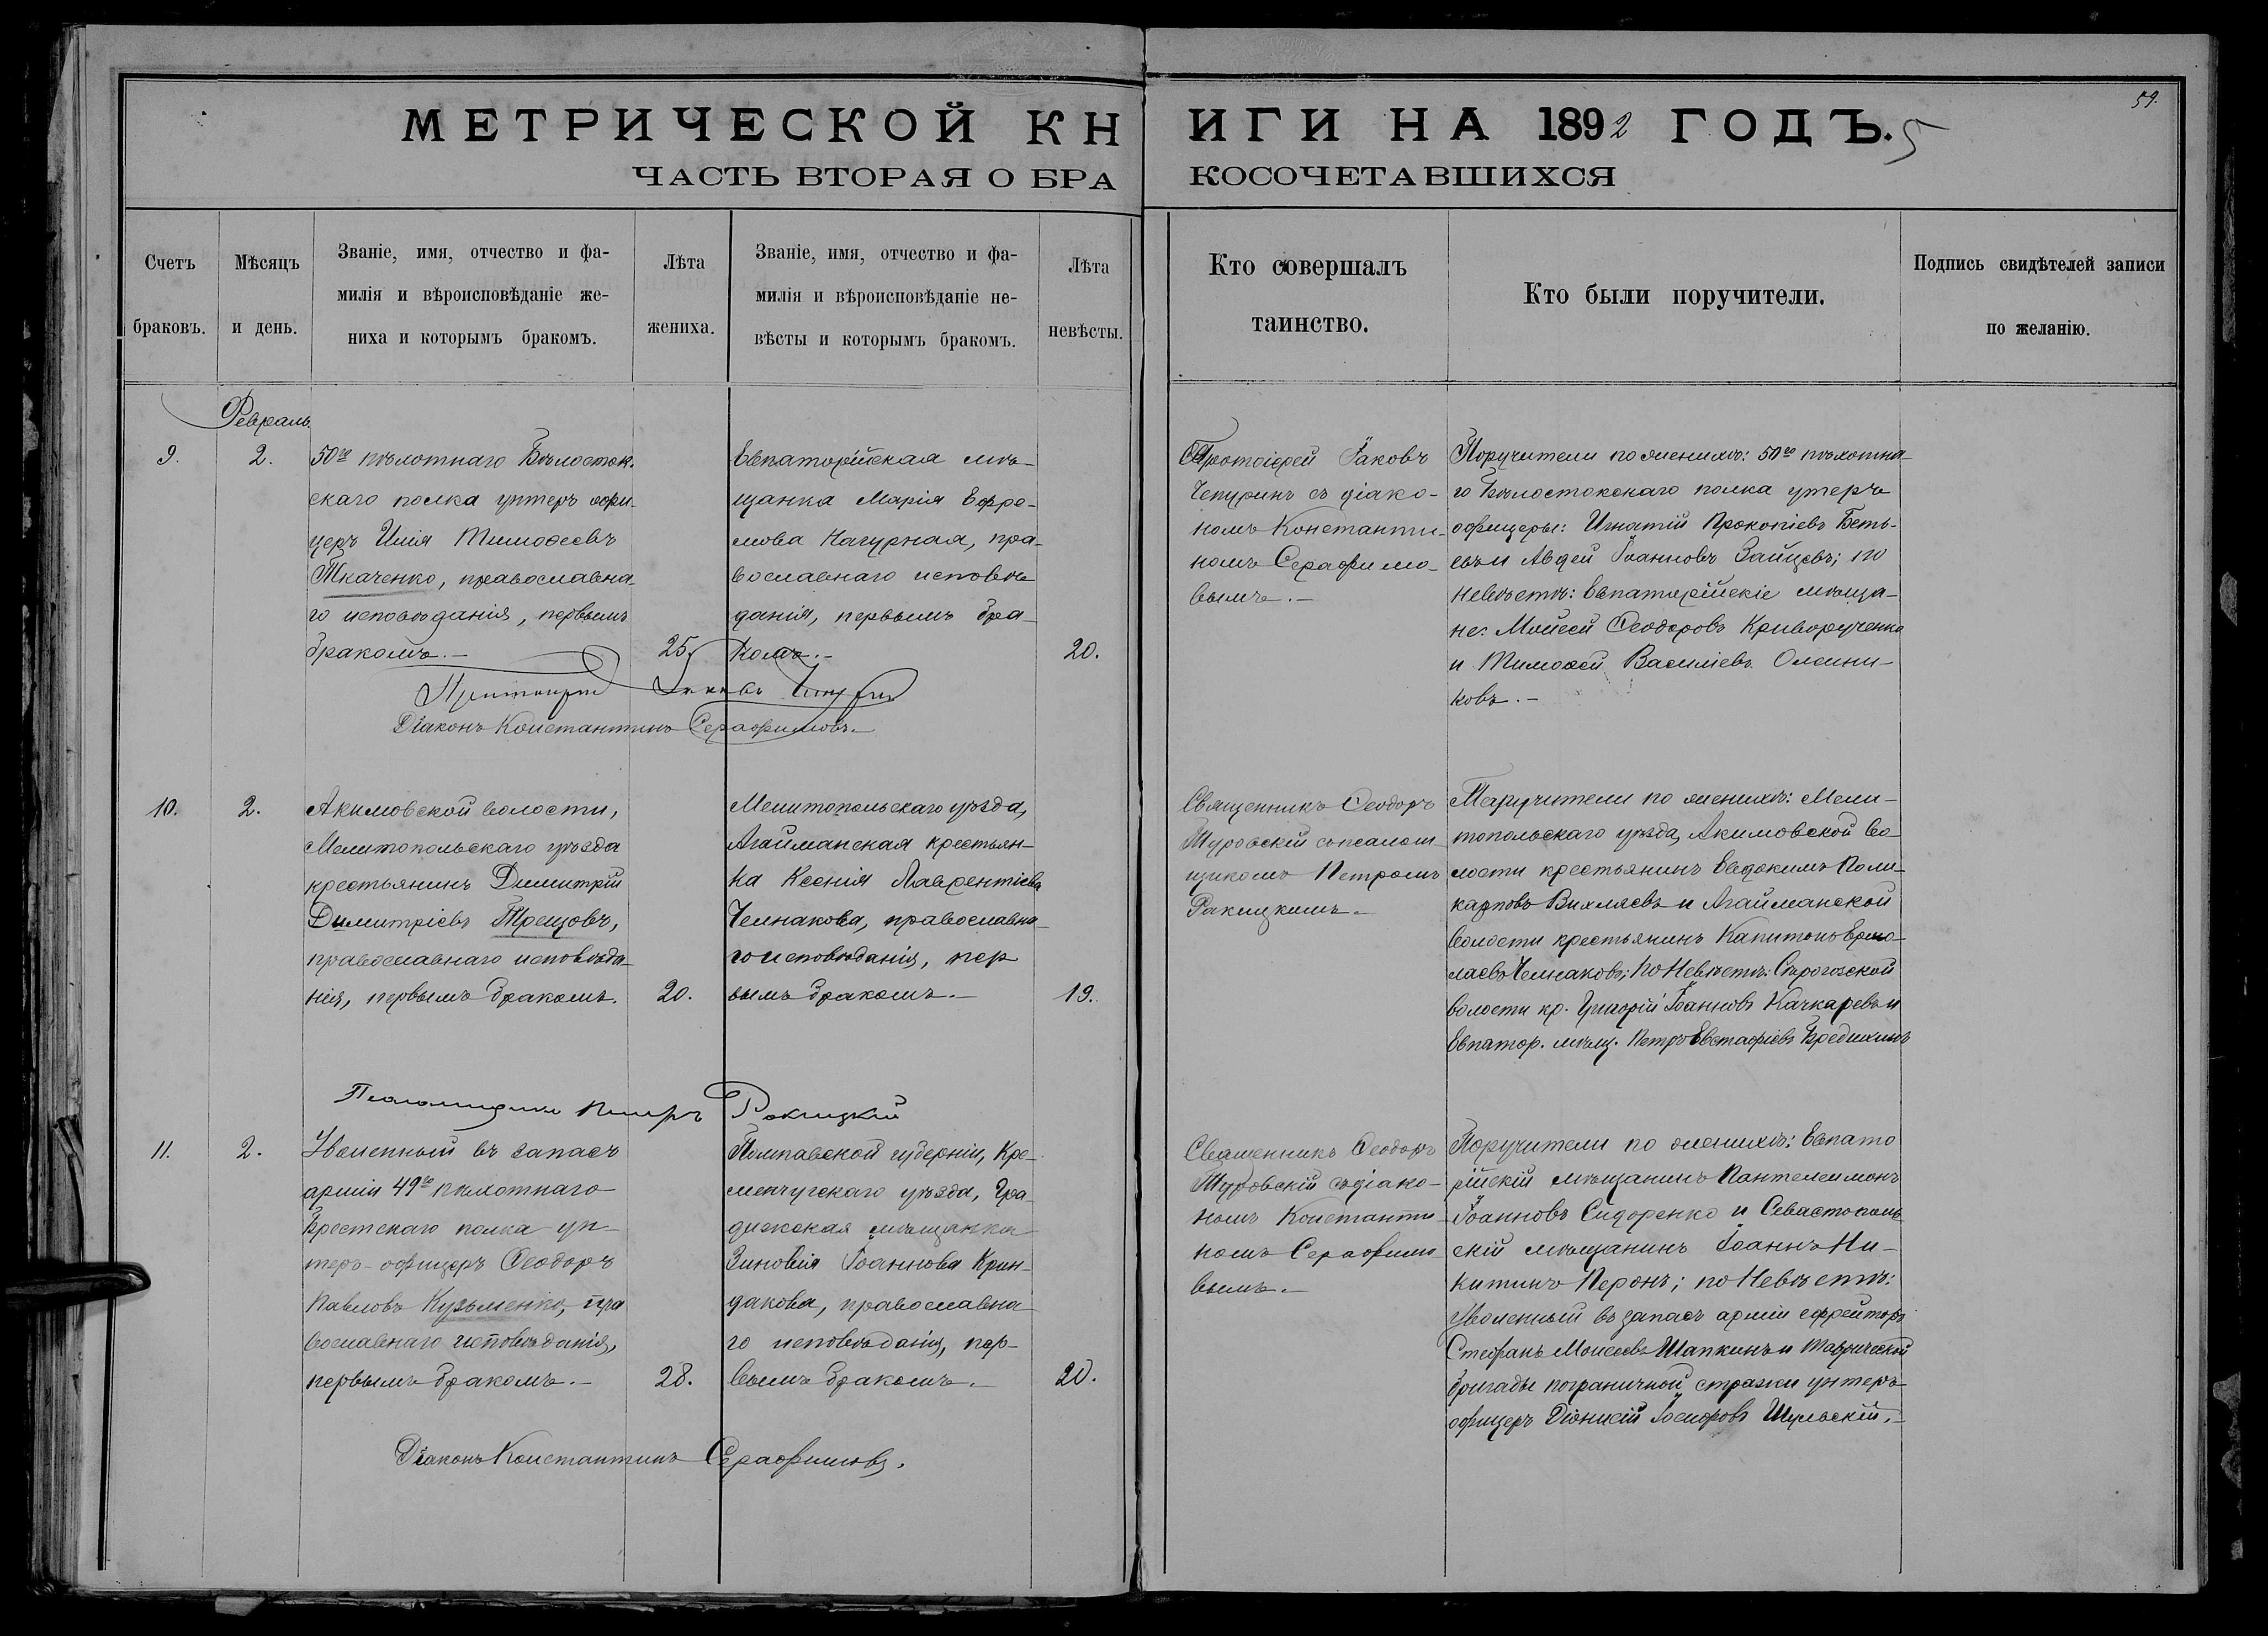 59.
МЕТРИЧЕСКОЙ КНИГИ НА 1892 ГОДЪ. 5
ЧАСТЬ ВТОРАЯ О БРАКОСОЧЕТАВШИХСЯ
Счетъ
браковъ.
Мѣсяцъ
и день.
Званіе, имя, отчество и фа-
милія и вѣроисповѣданіе же-
ниха и которымъ бракомъ.
Лѣта
жениха.
Званіе, имя, отчество и фа-
милія и вѣроисповѣданіе не-
вѣсты и которымъ бракомъ.
Лѣта
невѣсты.
Кто совершалъ
таинство.
Кто были поручители.
Подпись свидѣтелей записи
по желанію.
Февраль
9.
2.
50го пѣхотнаго Бѣлосток-
скаго полка унтеръ офи-
церъ Илія Тимоѳеевъ
Ткаченко, православна
го исповѣданія, первымъ
бракомъ.-
25.
Евпаторійская мѣ-
щанка Марія Ефре-
мова Нагурная, пра-
вославнаго исповѣ
данія, первымъ бра-
комъ.-
20.
Протоіерей Іаковъ
Чепуринъ съ діако-
номъ Константи-
номъ Серафимо-
вымъ.-
Поручители по женихѣ: 50го пѣхотна-
го Бѣлостокскаго полка утеръ
офицеры: Игнатій Прокопіевъ Беть-
евъ и Авдей Іоанновъ Зайцевъ; по
невѣстѣ: Евпаторійскіе мѣща-
не: Мойсей Ѳеодоровъ Криворученко
и Тимоѳей Василіевъ Олейни-
ковъ.-
Протоіерей Іаковъ Чепуринъ
Діаконъ Константинъ Серафимовъ.-
10.
2.
Акимовской волости,
Мелитопольскаго уѣзда
крестьянинъ Димитрій
Димитріевъ Трещовъ,
православнаго исповѣда-
нія, первымъ бракомъ.
20.
Мелитопольскаго уѣзда,
Агайманская крестьян-
ка Ксенія Лаврентіева
Челнакова, православна-
го исповѣданія, пер
вымъ бракомъ.-
19.
Священникъ Ѳеодоръ
Туровскій съ псалом-
щикомъ Петромъ
Ракицкимъ.-
Поручители по женихѣ: Мели-
топольскаго уѣзда, Акимовской во-
лости крестьянинъ Евдокимъ Поли-
карповъ Вихляевъ и Агайманской
волости крестьянинъ Капитонъ Ермо-
лаевъ Челнаковъ; по невѣстѣ: Сѣрогозской
волости кр. Григорій Іоанновъ Качкаревъ и
Евпатор. мѣщ. Петръ Евстафіевъ Бредихинъ
Псаломщикъ Петръ Ракицкій
11.
2.
Уволенный въ запасъ
арміи 49го пѣхотнаго
Брестскаго полка ун-
теръ-офицеръ Ѳеодоръ
Павловъ Кузьменко, пра
вославнаго исповѣданія,
первымъ бракомъ.-
28.
Полтавской губерніи, Кре-
менчугскаго уѣзда, Гра-
дижская мѣщанка
Зиновія Іоаннова Крин-
дакова, православна-
го исповѣданія, пер-
вымъ бракомъ.-
20.
Священникъ Ѳеодоръ
Туровскій съ діако-
номъ Константи-
номъ Серафимо-
вымъ.-
Поручители по женихѣ: Евпато
рійскій мѣщанинъ Пантелеимонъ
Іоанновъ Сидоренко и Севастополь
скій мѣщанинъ Іоаннъ Ни-
китинъ Перонъ; по невѣстѣ:
уволенный въ запасъ арміи ефрейторъ
Стефанъ Моисеевъ Шапкинъ и Таврической
бригады пограничной стражи унтеръ-
офицеръ Діонисій Іосифовъ Шульскій.-
Діаконъ Константинъ Серафимовъ.